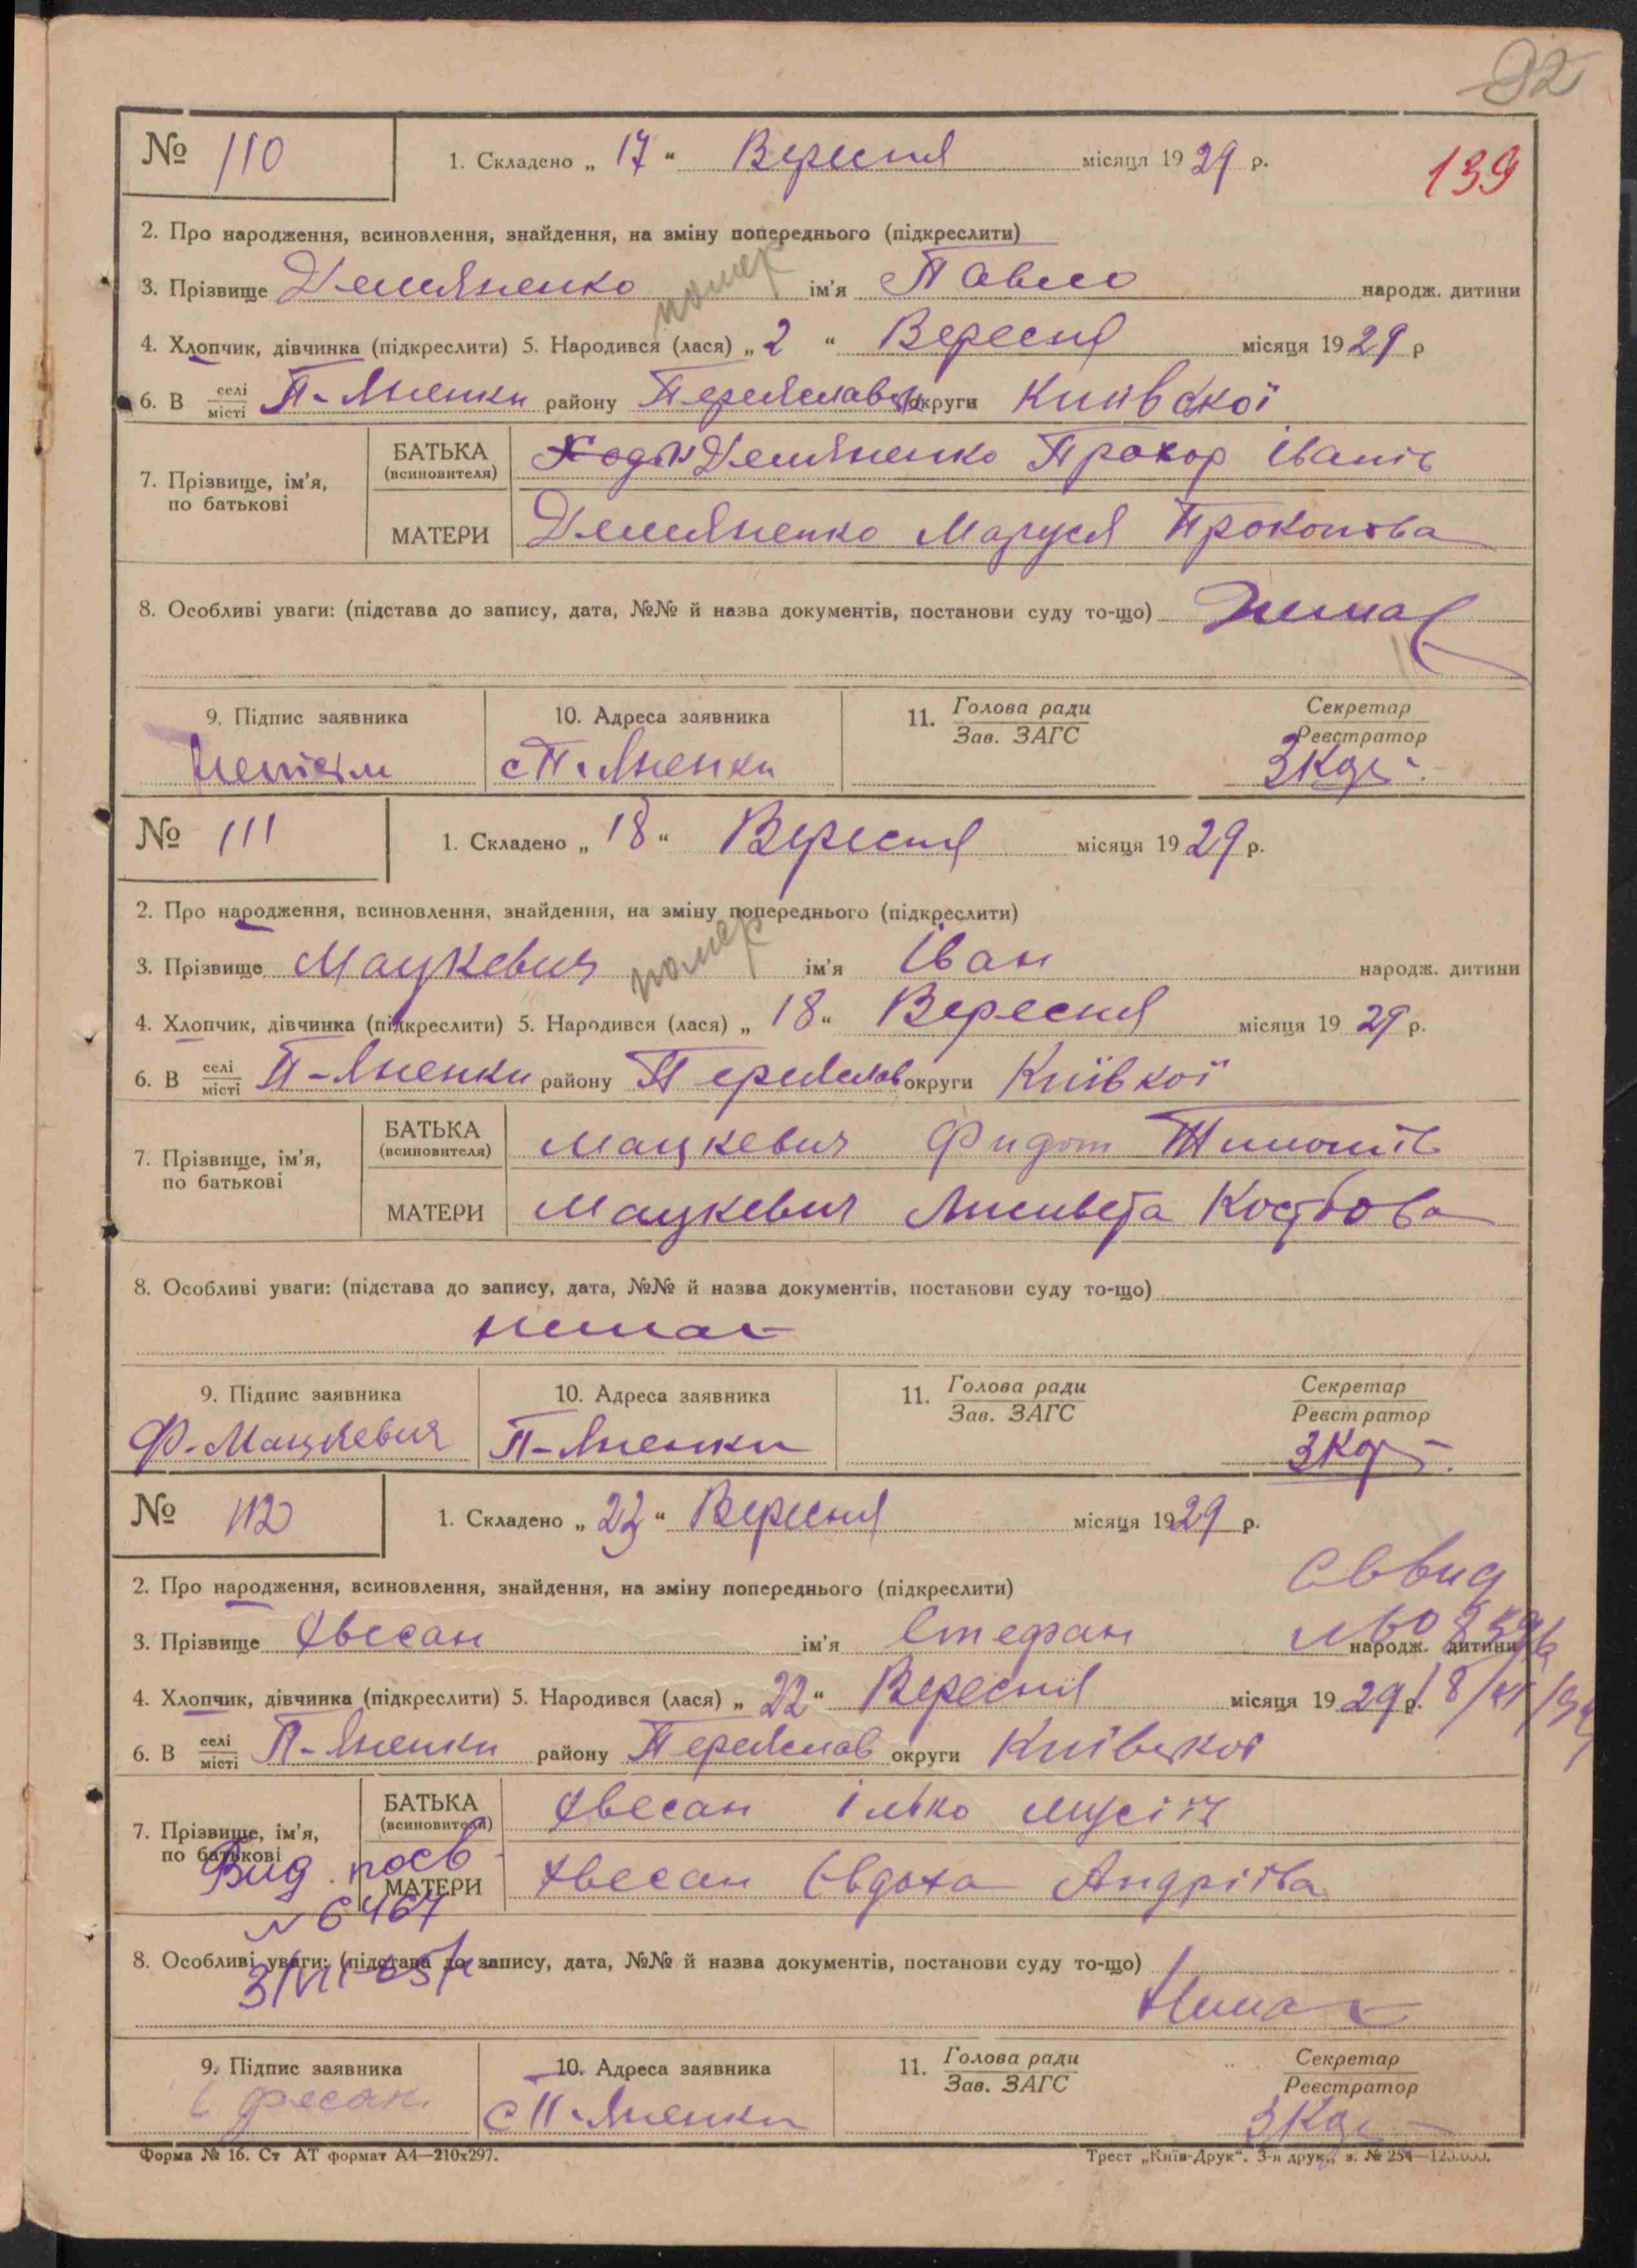 92
№ 110 1. Складено „ 17 “ Вересня місяця 1929 р. 139
2. Про народження, всиновлення, знайдення, на зміну попереднього (підкреслити)
помер
3. Прізвище Демяненко ім'я Павло народж. дитини
4. Хлопчик, дівчинка (підкреслити) 5. Народився (лася) „ 2 “ Вересня місяця 1929 р
6. В селі місті П-Яненки району Переяславськ округи Київської
7. Прізвище, ім'я, по батькові
БАТЬКА (всиновителя) Демяненко Прохор Іванів
МАТЕРИ Демяненко Маруся Прокопова
8. Особливі уваги: (підстава до запису, дата, №№ й назва документів, постанови суду то-що) Нема
9. Підпис заявника 10. Адреса заявника 11. Голова ради Зав. ЗАГС Секретар Реєстратор
с П-Яненки
№ 111 1. Складено „ 18 “ Вересня місяця 1929 р.
2. Про народження, всиновлення, знайдення, на зміну попереднього (підкреслити)
помер
3. Прізвище Мацкевич ім'я Іван народж. дитини
4. Хлопчик, дівчинка (підкреслити) 5. Народився (лася) „ 18 “ Вересня місяця 1929 р.
6. В селі місті П-Яненки району Переяслав округи Київкої
7. Прізвище, ім'я, по батькові
БАТЬКА (всиновителя) Мацкевич Фидот
МАТЕРИ Мацкевич Лисивета
8. Особливі уваги: (підстава до запису, дата, №№ й назва документів, постанови суду то-що)
нема
9. Підпис заявника 10. Адреса заявника 11. Голова ради Зав. ЗАГС Секретар Реєстратор
Ф. Мацкевич П-Яненки
№ 112 1. Складено „ “ Вересня місяця 1929 р.
2. Про народження, всиновлення, знайдення, на зміну попереднього (підкреслити)
3. Прізвище Фесан ім'я Стефан народж. дитини
4. Хлопчик, дівчинка (підкреслити) 5. Народився (лася) „ 22 “ Вересня місяця 1929 р.
6. В селі місті П-Яненки району Переяслав округи Київскої
7. Прізвище, ім'я, по батькові
БАТЬКА (всиновителя) Фесан Ілько Мусіів
МАТЕРИ Фесан Євдоха Андріїва
Вид. посв
№ 6467
8. Особливі уваги: (підстава до запису, дата, №№ й назва документів, постанови суду то-що)
Нема
9. Підпис заявника 10. Адреса заявника 11. Голова ради Зав. ЗАГС Секретар Реєстратор
Фесан с П-Яненки
Форма № 16. Ст АТ формат А4—210х297. Трест „Київ-Друк“. 3-я друк., з. № 254—120.000.